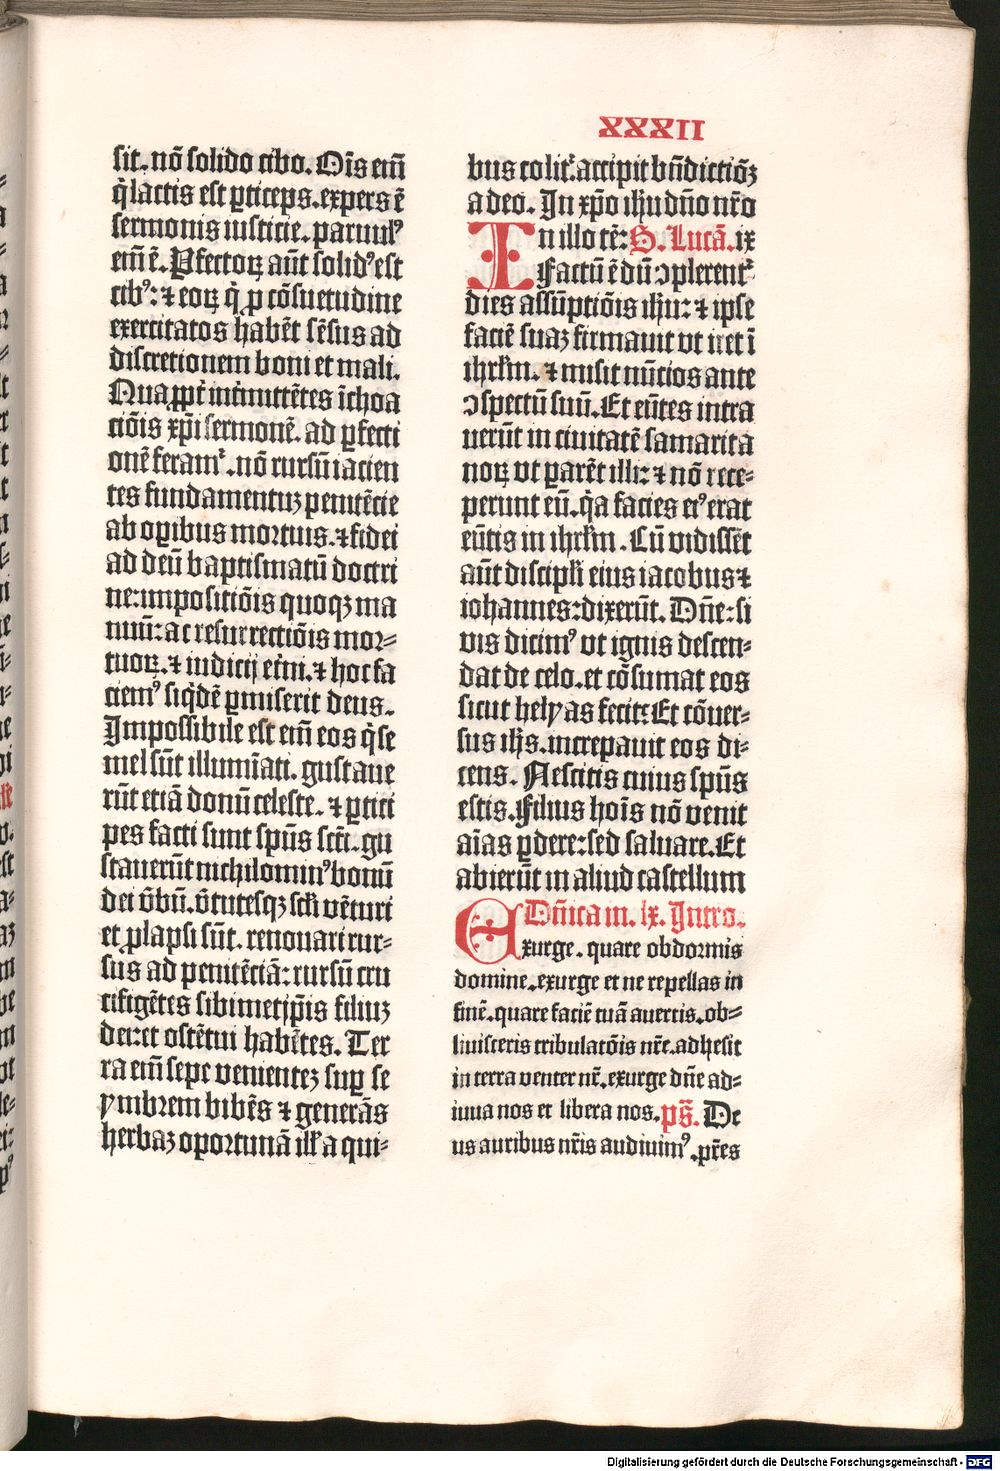 XXXII
sit. nō solido cibo. Oīs em̄
q̄ lactis est ꝑticeps. expers ē
sermonis iusticie. paruulꝰ
em̄ ē. Ꝑfectoꝝ aūt solidꝰ est
cibꝰ: ⁊ eoꝝ q̄ ꝑ cōsuetudine
exercitatos habēt sēsus ad
discretionem boni et mali.
Qua ꝓpt̄ int̄mittētes īchoa
ciōis xp̄i sermonē. ad ꝑfecti
onē feramᷣ. nō rursū iacien
tes fundamentuꝫ penitēcie
ab oꝑibus mortuis. ⁊ fidei
ad deū baptismatū doctri
ne: impositiōis quoqꝫ ma
nuū: ac resurrectiōis mor⸗
tuoꝝ. ⁊ iudicij et̄ni. ⁊ hoc fa
ciemꝰ siq̄dē ꝑmiserit deus.
Impossibile est em̄ eos q̄ se
mel sūt illumīati. gustaue
rūt etiā donū celeste. ⁊ ꝑtici
pes facti sunt spūs scti. gu
stauerūt nichilominꝰ bonū
dei v̄bū. v̄tutesqꝫ scl̄i vēturi
et ꝓlapsi sūt. renouari rur⸗
sus ad penitēciā: rursū cru
cifigētes sibimetip̄is filiuꝫ
dei: et ostētui habētes. Ter
ra em̄ sepe venienteꝫ suꝑ se
ymbrem bibēs ⁊ generās
herbaꝫ oportunā ill̄ a qui⸗
bus colitᷣ. accipit bn̄dictiōꝫ
a deo. In xp̄o ihu dn̄o nr̄o
In illo tē: S. Lucā. ix
Factū ē dū ↄplerentᷣ
dies assūptiōis ihū: ⁊ ipse
faciē suaꝫ firmauit vt iret ī
ihrl̄m. ⁊ misit nūcios ante
ↄspectū suū. Et eūtes intra
uerūt in ciuitatē samarita
noꝝ vt ꝑarēt illi: ⁊ nō rece⸗
perunt eū. q̄a facies eiꝰ erat
eūtis in ihrl̄m. Cū vidissēt
aūt discipl̄i eius iacobus ⁊
iohannes: dixerūt. Dn̄e: si
vis dicimꝰ vt ignis descen⸗
dat de celo. et cōsumat eos
sicut helyas fecit: Et cōuer⸗
sus ihs̄. increpauit eos di⸗
cens. Nescitis cuius spūs
estis. Filius hoīs nō venit
aīas ꝑdere: sed saluare. Et
abierūt in aliud castellum
Dn̄ica in. lx. Intro.
Exurge. quare obdormis
domine. exurge et ne repellas in
finē. quare faciē tuā auertis. ob⸗
liuisceris tribulatōis nr̄e. adhesit
in terra venter nr̄. exurge dn̄e ad⸗
iuua nos et libera nos. ps̄. De
us auribus nr̄is audiuimꝰ. pr̄es
Digitalisierung gefördert durch die Deutsche Forschungsgemeinschaft - DFG